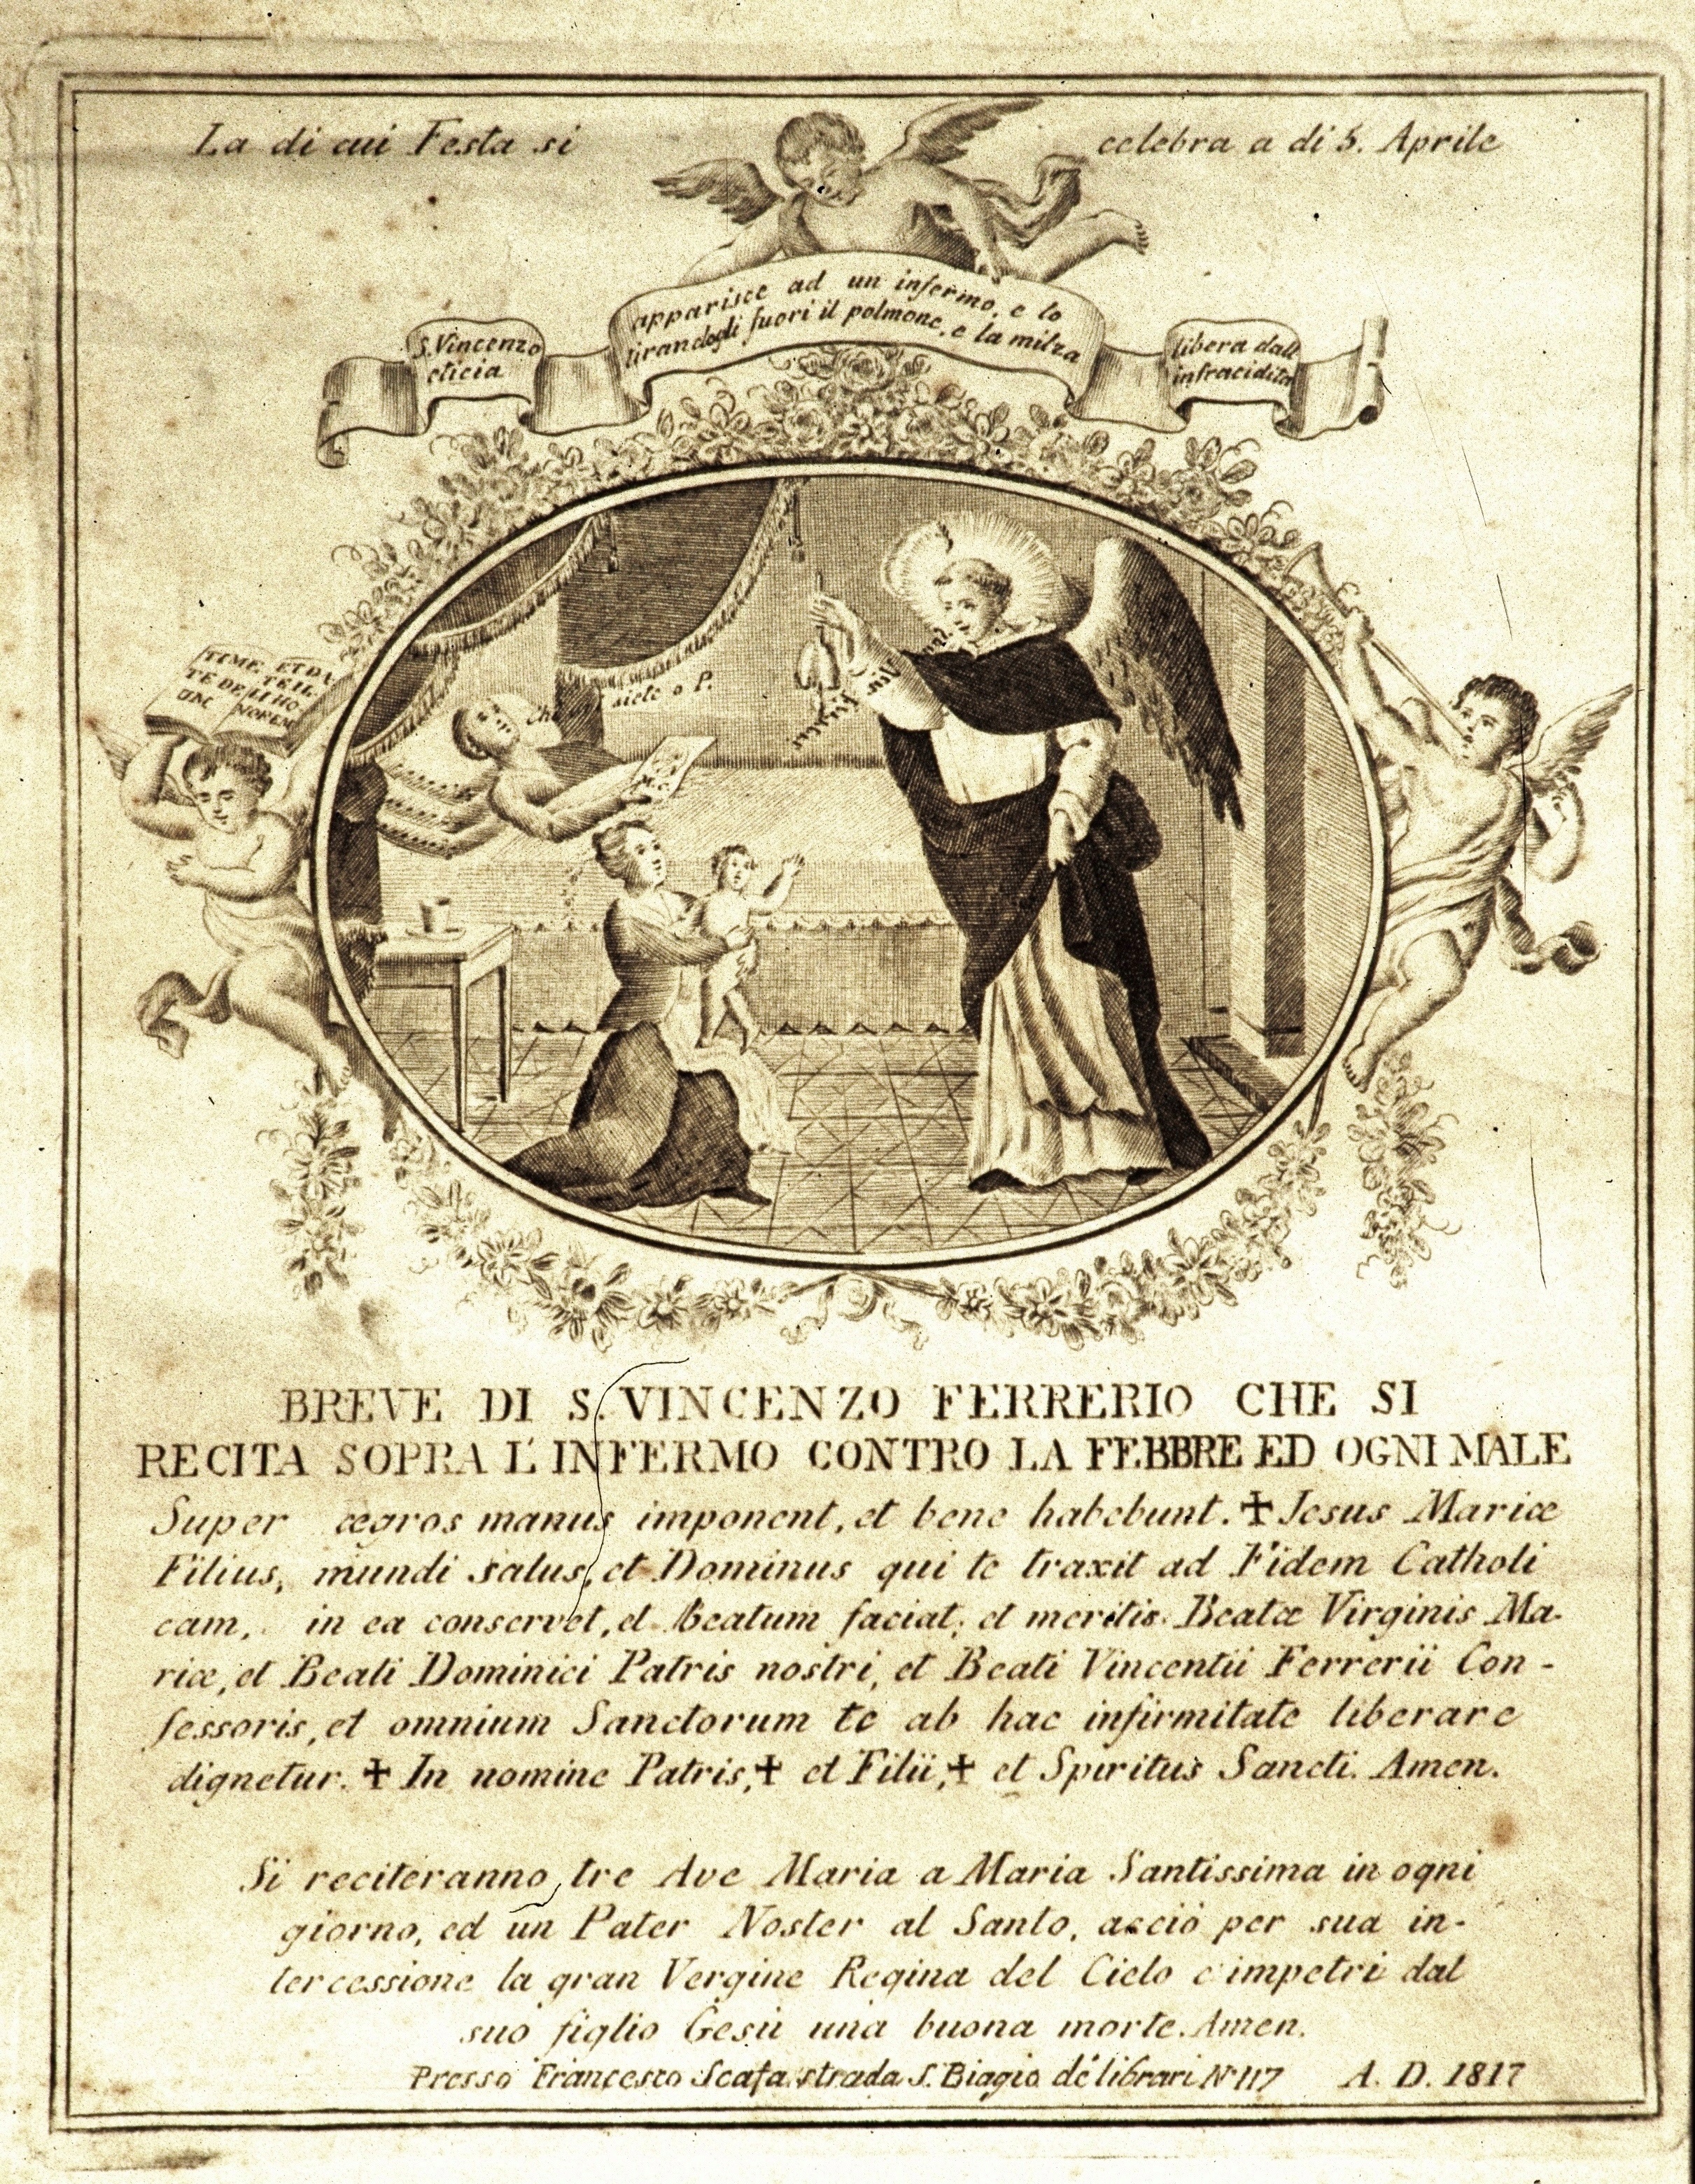 La di cui Festa si celebra a di 5. Aprile
S. Vincenzo apparisce ad un infermo, e lo libera dall
eticia tirandogli fuori il polmone, e la milza infracidita
TIME
TE DE
UM
ET DA
TE IL
LI HO
NOREM
siete o P.
BREVE DI S. VINCENZO FERRERIO CHE SI
RECITA SOPRA L'INFERMO CONTRO LA FEBBRE ED OGNI MALE
Super ægros manus imponent, et bene habebunt. ✠ Jesus Mariæ
Filius, mundi salus, et Dominus qui te traxit ad Fidem Catholi
cam, in ea conservet, et Beatum faciat; et meritis Beatæ Virginis Ma-
riæ, et Beati Dominici Patris nostri, et Beati Vincentii Ferrerii Con-
fessoris, et omnium Sanctorum te ab hac infirmitate liberare
dignetur. ✠ In nomine Patris, ✠ et Filii, ✠ et Spiritus Sancti. Amen.
Si reciteranno tre Ave Maria a Maria Santissima in ogni
giorno, ed un Pater Noster al Santo, acciò per sua in-
tercessione la gran Vergine Regina del Cielo c'impetri dal
suo figlio Gesù una buona morte. Amen.
Presso Francesco Scafa strada S. Biagio de' librari N 117 A. D. 1817